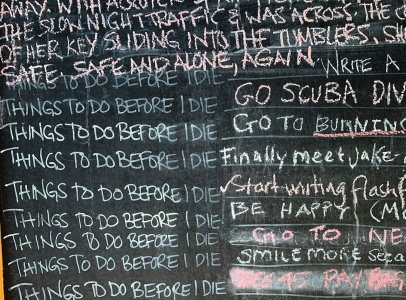 AWAY. WITH
THE SLOW NIGHT TRAFFIC & WAS ACROSS THE
OF HER KEY SLIDING INTO THE TUMBLERS. SH
SAFE, SAFE AND ALONE, AGAIN. WRITE A
THINGS TO DO BEFORE I DIE
THINGS TO DO BEFORE I DIE GO SCUBA DIV
THINGS TO DO BEFORE I DIE GO TO BURNING
THINGS TO DO BEFORE I DIE Finally meet Jake
THINGS TO DO BEFORE I DIE ✓Start writing flash f
THINGS TO DO BEFORE I DIE BE HAPPY (M
THINGS TO DO BEFORE I DIE GO TO NE
THINGS TO DO BEFORE I DIE SMILE MORE
THINGS TO DO BEFORE I DIE 45 PAY